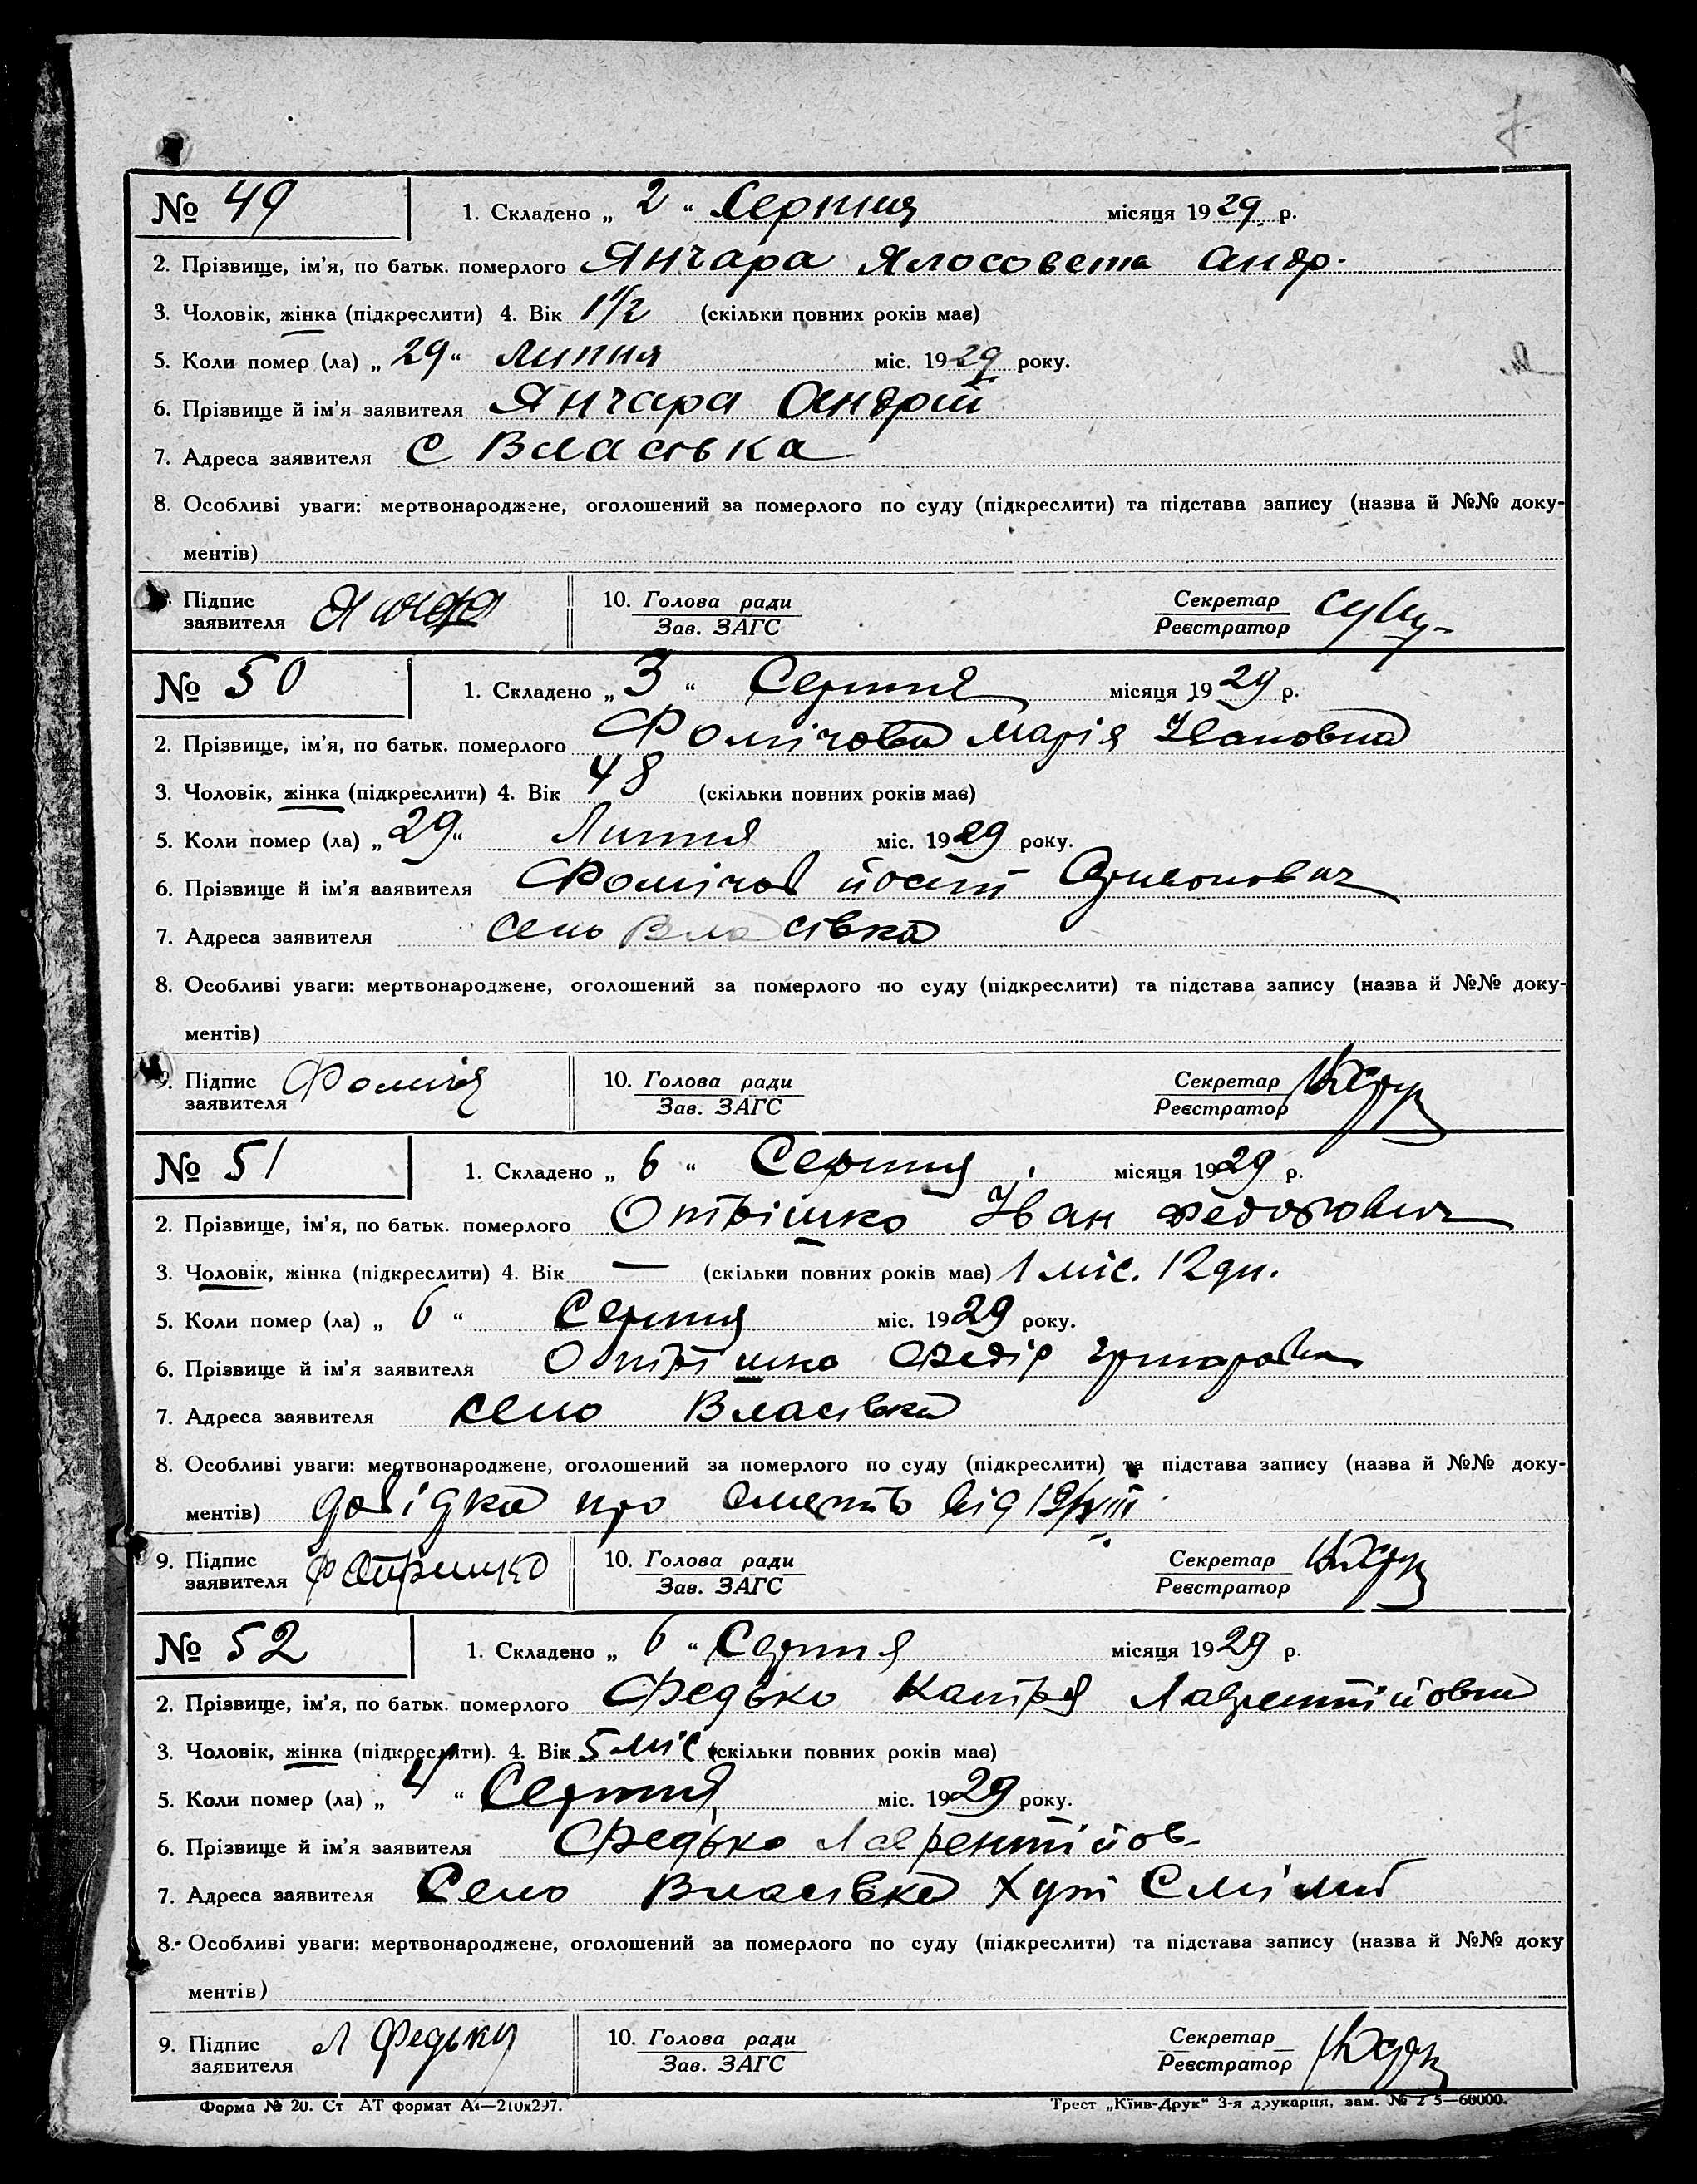 7
№ 49
1. Складено „ 2 “ Серпня місяця 1929 р.
2. Прізвище, ім'я, по батьк. померлого Янчара Ялосовета Андр.
3. Чоловік, жінка (підкреслити) 4. Вік 1 1/2 (скільки повних років має)
5. Коли помер (ла) „ 29 “ Липня міс. 1929 року.
6. Прізвище й ім'я заявителя Янчара Андрій
7. Адреса заявителя С Власовка
8. Особливі уваги: мертвонароджене, оголошений за померлого по суду (підкреслити) та підстава запису (назва й №№ доку-
ментів)
Підпис заявителя
10. Голова ради Зав. ЗАГС
Секретар Реєстратор
№ 50
1. Складено „ 3 “ Серпня місяця 1929 р.
2. Прізвище, ім'я, по батьк. померлого Фомічова Марія Івановна
3. Чоловік, жінка (підкреслити) 4. Вік 48 (скільки повних років має)
5. Коли помер (ла) „ 29 “ Липня міс. 1929 року.
6. Прізвище й ім'я заявителя Фомічов йосип
7. Адреса заявителя село Власівка
8. Особливі уваги: мертвонароджене, оголошений за померлого по суду (підкреслити) та підстава запису (назва й №№ доку-
ментів)
9. Підпис заявителя
10. Голова ради Зав. ЗАГС
Секретар Реєстратор
№ 51
1. Складено „ 6 “ Серпня місяця 1929 р.
2. Прізвище, ім'я, по батьк. померлого Отрішко Іван Федорович
3. Чоловік, жінка (підкреслити) 4. Вік — (скільки повних років має) 1 міс. 12 дн.
5. Коли помер (ла) „ 6 “ Серпня міс. 1929 року.
6. Прізвище й ім'я заявителя Отрішко Федір
7. Адреса заявителя село Власівка
8. Особливі уваги: мертвонароджене, оголошений за померлого по суду (підкреслити) та підстава запису (назва й №№ доку-
ментів) довідка про смерть від
9. Підпис заявителя Ф Отришко
10. Голова ради Зав. ЗАГС
Секретар Реєстратор
№ 52
1. Складено „ 6 “ Серпня місяця 1929 р.
2. Прізвище, ім'я, по батьк. померлого Федько Катря Лаврентійовна
3. Чоловік, жінка (підкреслити). 4. Вік 5 міс (скільки повних років має)
5. Коли помер (ла) „ 4 “ Серпня міс. 1929 року.
6. Прізвище й ім'я заявителя Федько Лаврентійов
7. Адреса заявителя Село Власівка Хут
8. Особливі уваги: мертвонароджене, оголошений за померлого по суду (підкреслити) та підстава запису (назва й №№ доку
ментів)
9. Підпис заявителя Л Федько
10. Голова ради Зав. ЗАГС
Секретар Реєстратор
Форма № 20. Ст АТ формат А4—210х297.
Трест „Київ-Друк“ 3-я друкарня, зам. №